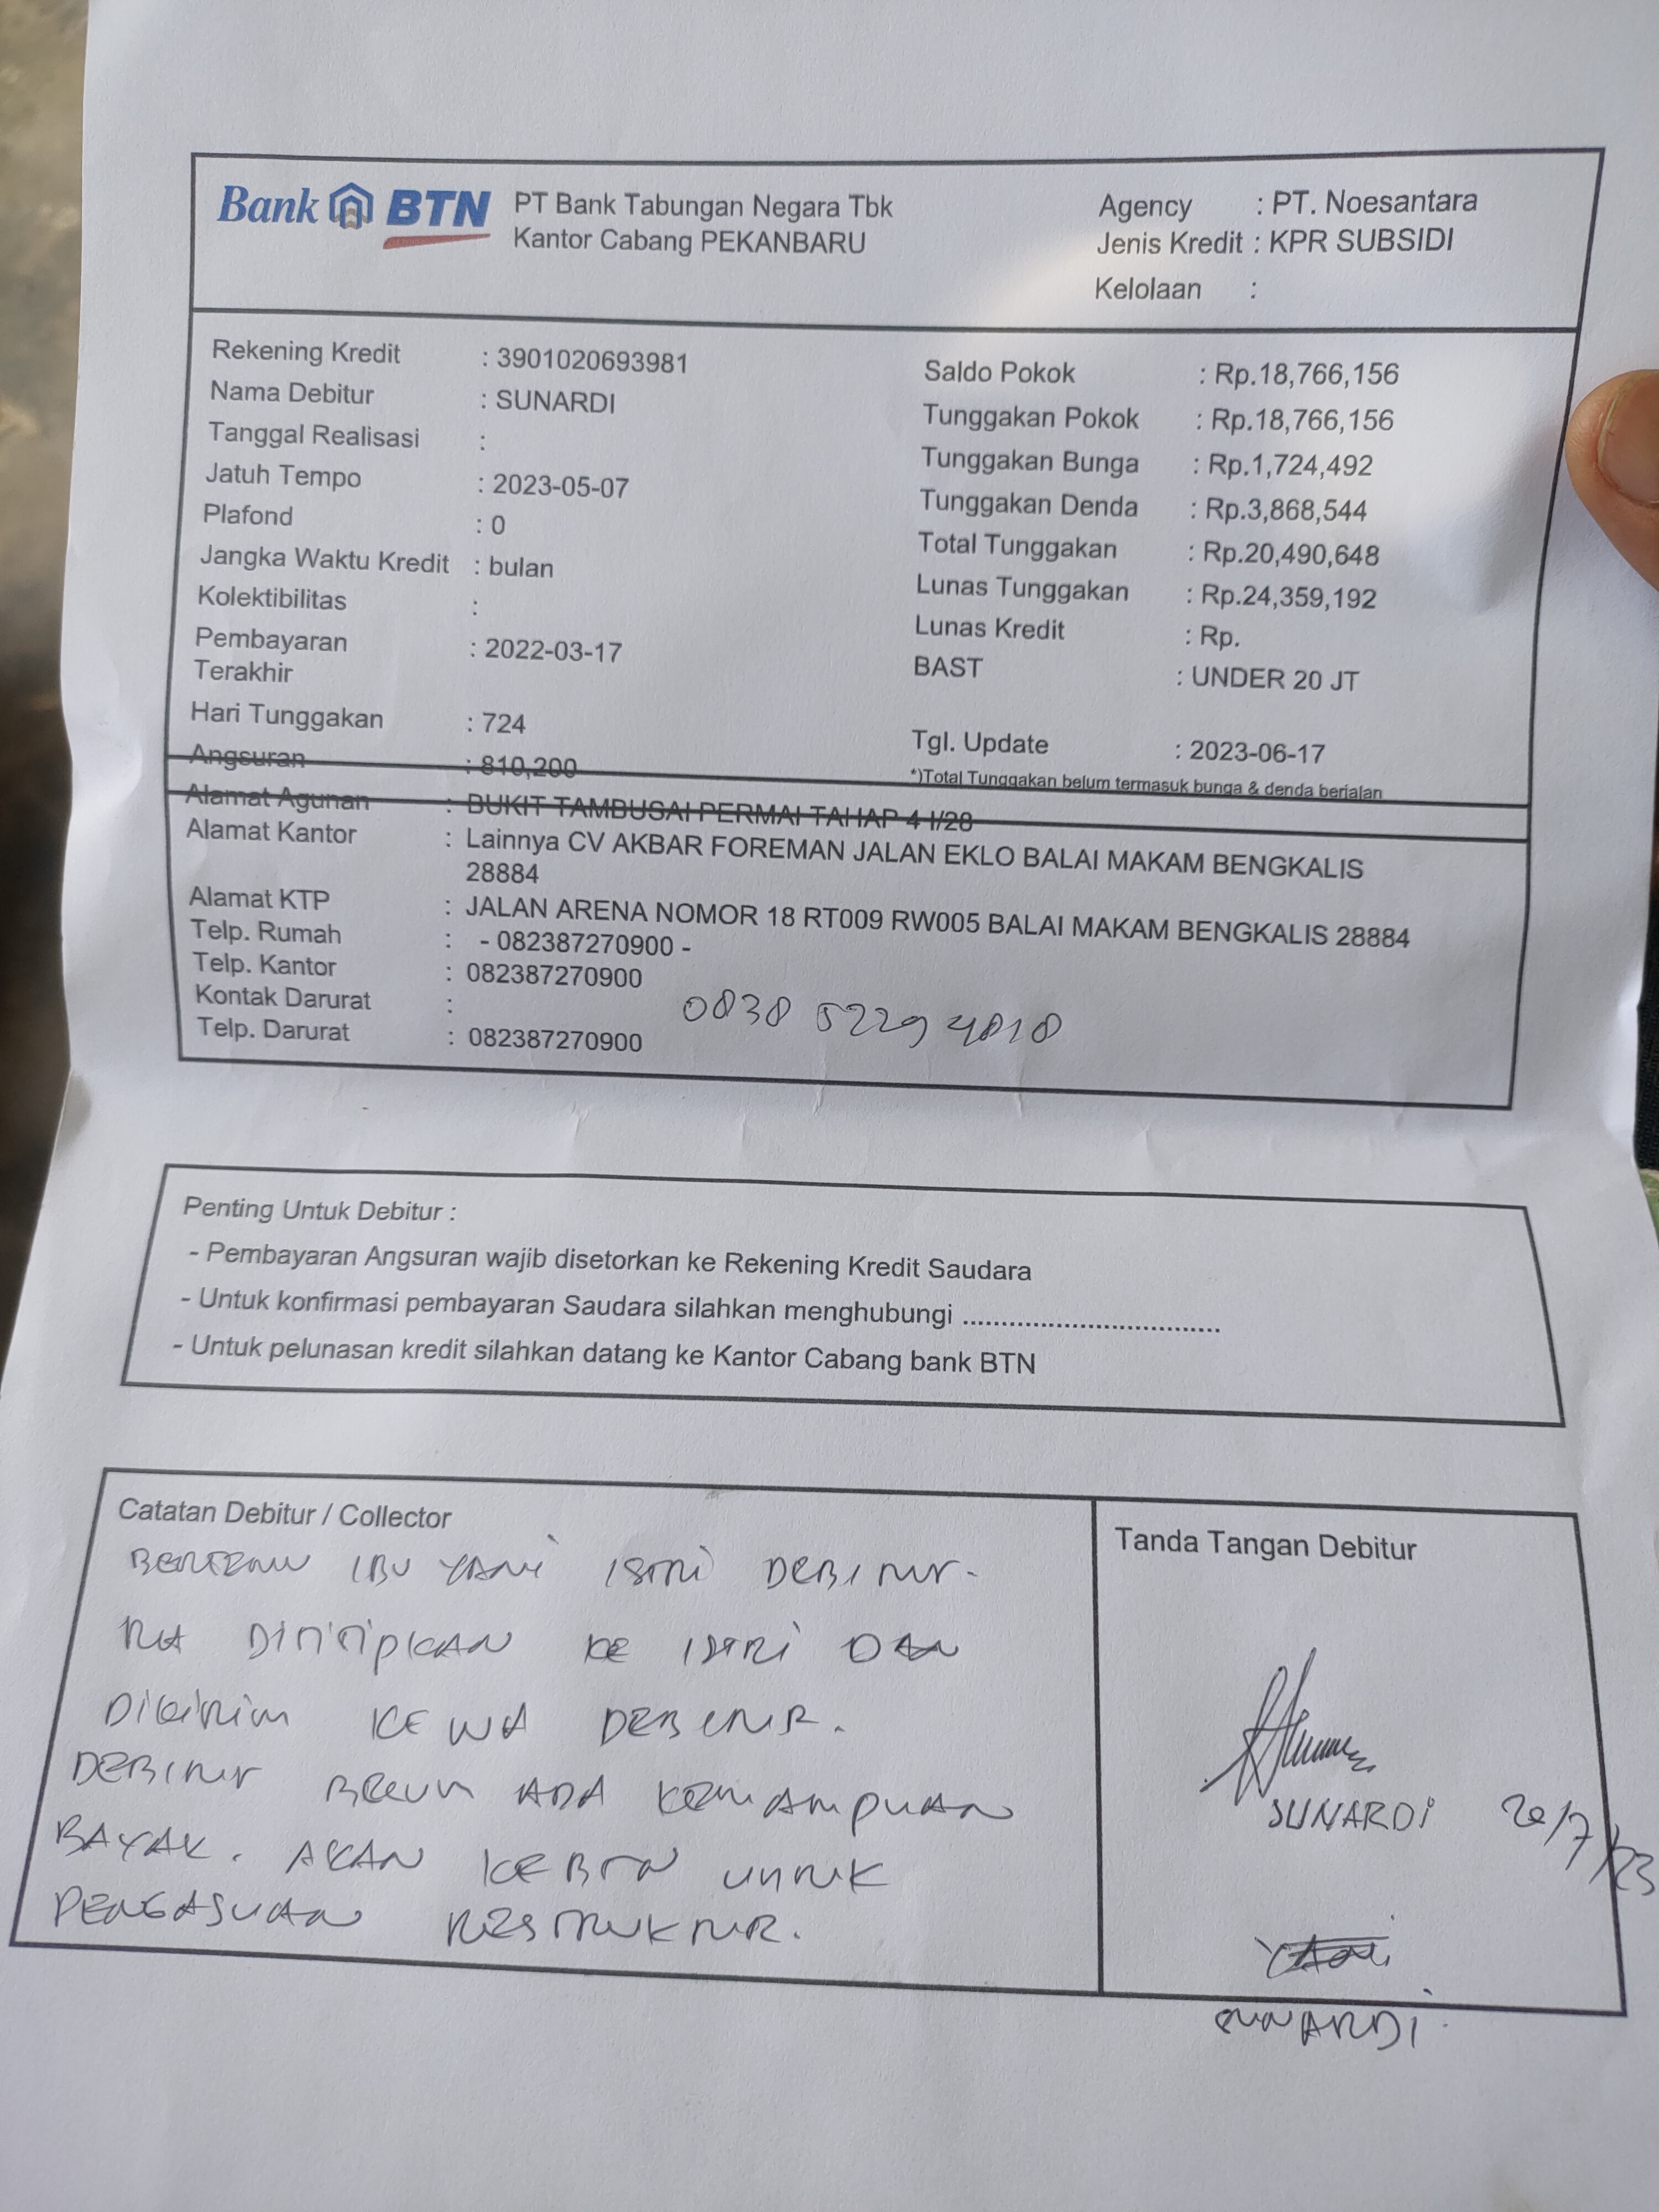 Bank BTN
PT Bank Tabungan Negara Tbk
Kantor Cabang PEKANBARU
Agency : PT. Noesantara
Jenis Kredit : KPR SUBSIDI
Kelolaan :
Rekening Kredit : 3901020693981
Nama Debitur : SUNARDI
Tanggal Realisasi :
Jatuh Tempo : 2023-05-07
Plafond : 0
Jangka Waktu Kredit : bulan
Kolektibilitas :
Pembayaran : 2022-03-17
Terakhir
Hari Tunggakan : 724
Angsuran : 810,200
Saldo Pokok : Rp.18,766,156
Tunggakan Pokok : Rp.18,766,156
Tunggakan Bunga : Rp.1,724,492
Tunggakan Denda : Rp.3,868,544
Total Tunggakan : Rp.20,490,648
Lunas Tunggakan : Rp.24,359,192
Lunas Kredit : Rp.
BAST : UNDER 20 JT
Tgl. Update : 2023-06-17
*)Total Tunggakan belum termasuk bunga & denda berjalan
Alamat Agunan : BUKIT TAMBUSAI PERMAI TAHAP 4 I/28
Alamat Kantor : Lainnya CV AKBAR FOREMAN JALAN EKLO BALAI MAKAM BENGKALIS
28884
Alamat KTP : JALAN ARENA NOMOR 18 RT009 RW005 BALAI MAKAM BENGKALIS 28884
Telp. Rumah : - 082387270900 -
Telp. Kantor : 082387270900
Kontak Darurat :
Telp. Darurat : 082387270900
0838 5229 4818
Penting Untuk Debitur :
- Pembayaran Angsuran wajib disetorkan ke Rekening Kredit Saudara
- Untuk konfirmasi pembayaran Saudara silahkan menghubungi ....................................
- Untuk pelunasan kredit silahkan datang ke Kantor Cabang bank BTN
Catatan Debitur / Collector
BERTEMU IBU YANI ISTRI DEBITUR.
DITITIPKAN KE ISTRI DAN
DIKIRIM KE WA DEBITUR.
DEBITUR BELUM ADA KEMAMPUAN
BAYAR. AKAN KE BTN UNTUK
PENGAJUAN RESTRUKTUR.
Tanda Tangan Debitur
SUNARDI
20/7/23
SUNARDI